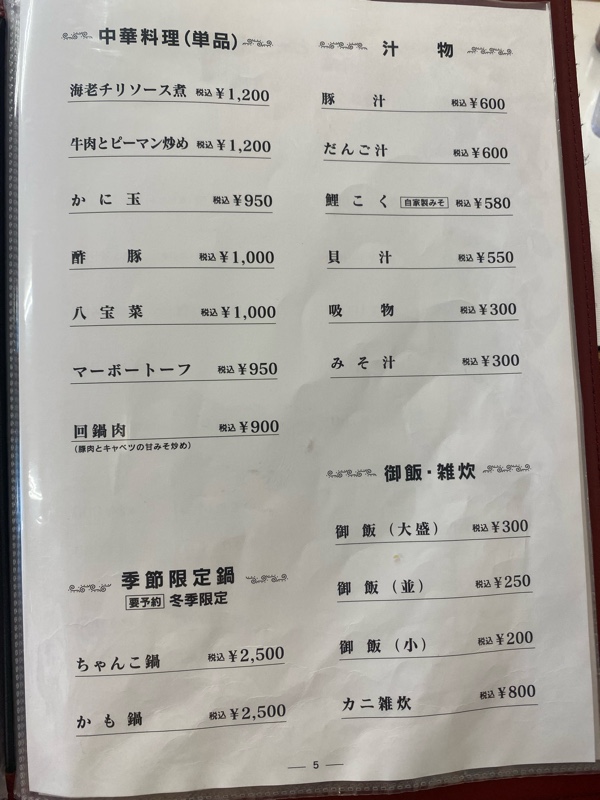 中華料理(単品)
海老チリソース煮 税込¥1,200
牛肉とピーマン炒め 税込¥1,200
かに玉 税込¥950
酢豚 税込¥1,000
八宝菜 税込¥1,000
マーボートーフ 税込¥950
回鍋肉 税込¥900
(豚肉とキャベツの甘みそ炒め)
季節限定鍋
要予約 冬季限定
ちゃんこ鍋 税込¥2,500
かも鍋 税込¥2,500
汁物
豚汁 税込¥600
だんご汁 税込¥600
鯉こく 自家製みそ 税込¥580
貝汁 税込¥550
吸物 税込¥300
みそ汁 税込¥300
御飯・雑炊
御飯(大盛) 税込¥300
御飯(並) 税込¥250
御飯(小) 税込¥200
カニ雑炊 税込¥800
5